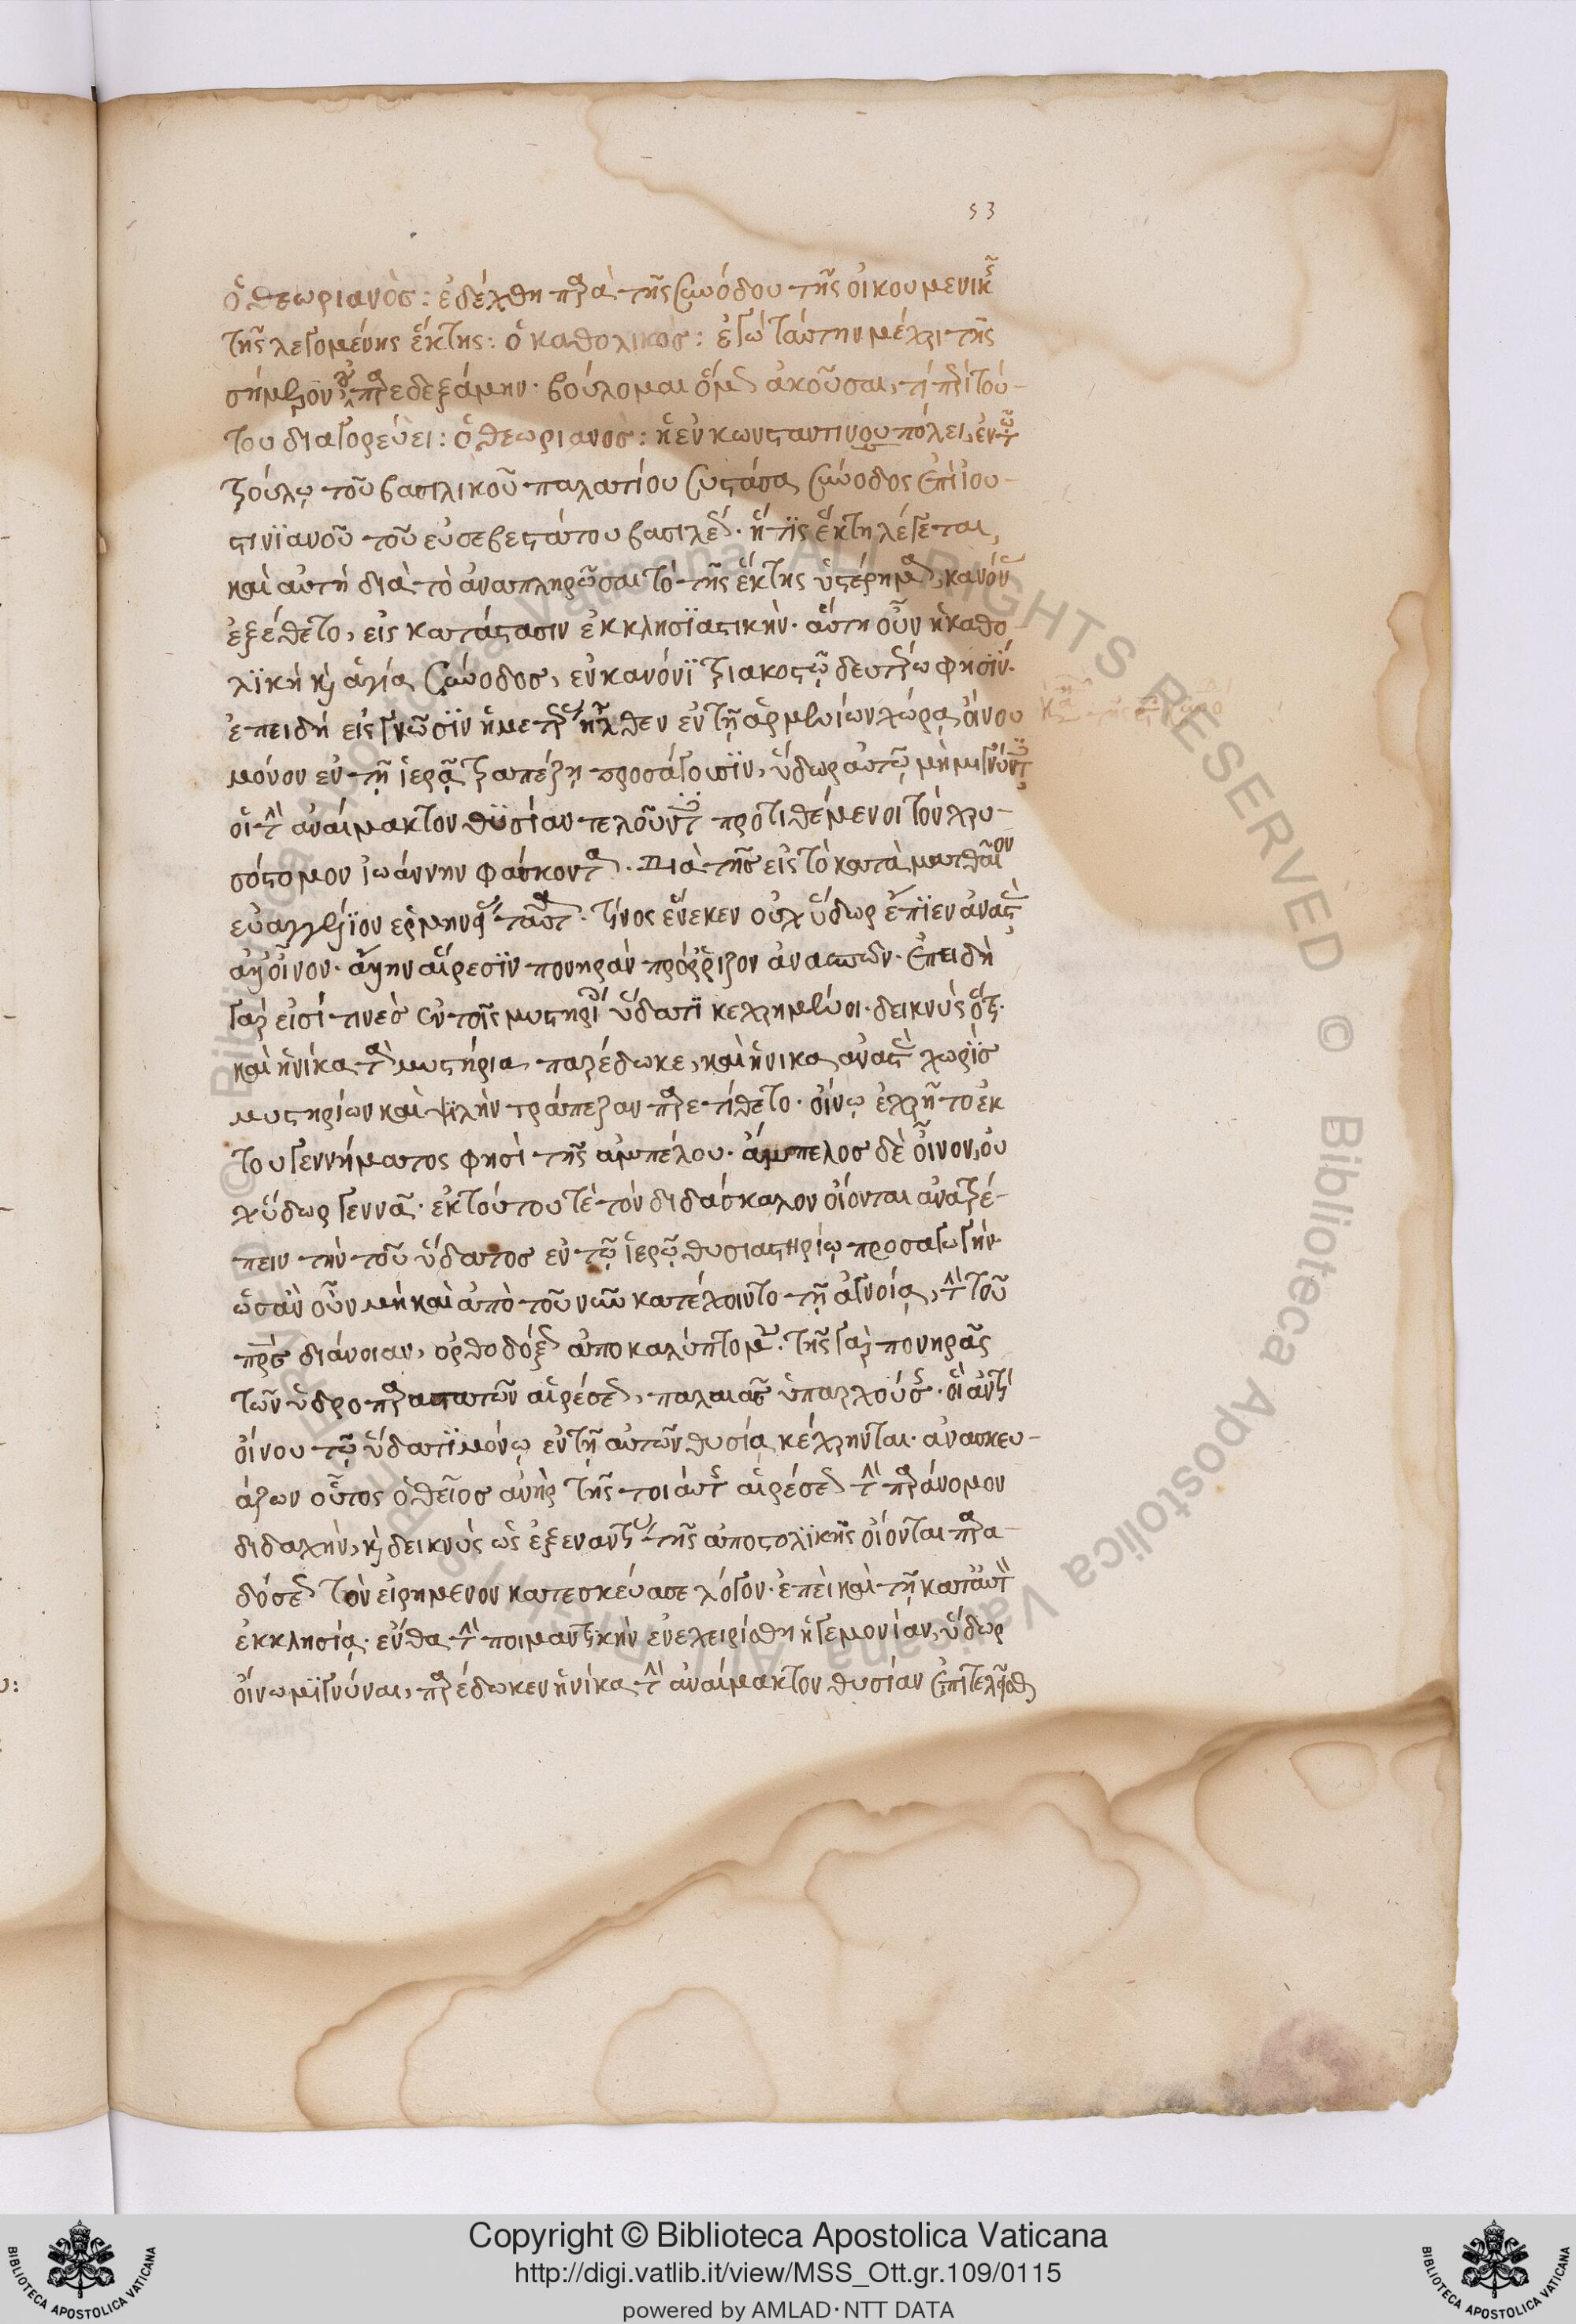 53
ὁ θεωριανὸς: ἐδέχθη παρὰ τῆς συνόδου τῆς οἰκουμενικῆς
τῆς λεγομένης ἕκτης: ὁ καθολικος: ἐγὼ ταύτην μέχρι τῆς
σήμερον οὐ παρεδεξάμην· βούλομαι ὅμως ἀκοῦσαι, τί περὶ τού-
του διαγορεύει: ὁ θεωριανος: ἡ ἐν κωνσταντινουπόλει, ἐν τῶ
τρούλῳ τοῦ βασιλικοῦ παλατίου συστᾶσα σύνοδος ἐπὶ ἰου-
στινϊανοῦ τοῦ εὐσεβεστάτου βασιλέως· ἥ τϊς ἕκτη λέγεται,
καὶ αὐτὴ διὰ τὸ ἀναπληρῶσαι τὸ τῆς ἕκτης ὑστέρημα, κανόνας
ἐξέθετο, εἰς κατάστασιν ἐκκλησϊαστικήν· αὕτη οὖν ἡ καθο
λϊκὴ καὶ ἁγία σύνοδος, ἐν κανόνϊ τριακοστῷ δευτέρω φησϊν·
ἐπειδὴ εἰς γνῶσϊν ἡμετέραν ἦλθεν ἐν τῇ ἀρμενίων χώρᾳ οἶνον
μόνον ἐν τῇ ἱερᾷ τραπέζῃ προσάγουσϊν, ὕδωρ αὐτῷ μὴ μιγνύντες
οἱ τὴν ἀναίμακτον θϋσίαν τελοῦντες προτιθέμενοι τὸν χρυ-
σόστομον ἰωάννην φάσκοντα. Διὰ τῆς εἰς τὸ κατὰ ματθαῖον
εὐαγγέλϊον ἑρμηνείας ταῦτα· τίνος ἕνεκεν οὐχ ὕδωρ ἔπϊεν ἀναστὰς
ἀλλ' οἶνον· ἄλλην αἵρεσϊν πονηρὰν πρόρριζον ἀνασπῶν· ἐπειδὴ
γάρ εἰσί τινες ἐν τοῖς μυστηρίοις ὕδατϊ κεχρημένοι· δεικνὺς ὅτι·
καὶ ἡνίκα τὰ μυστήρια παρέδωκε, καὶ ἡνικα ἀναστὰς χωρὶς
μυστηρίων καὶ ψϊλὴν τράπεζαν παρετίθετο· οἴνῳ ἐχρῆτο ἐκ
του γεννήματος φησὶ τῆς ἀμπέλου· ἄμπελος δὲ οἶνον, οὐ
χ ὕδωρ γεννᾶ· ἐκ τούτου τὲ τὸν διδάσκαλον οἴονται ἀνατρέ-
πειν τὴν τοῦ ὕδατος ἐν τῷ ἱερῷ θυσιαστηρίῳ προσαγωγήν·
ὡς ἂν οὖν μὴ καὶ ἀπὸ τοῦ νῦν κατέχοιντο τῇ ἀγνοίᾳ, τὴν τοῦ
πατρὸς διάνοιαν, ὀρθοδόξως ἀποκαλύπτομεν· τῆς γὰρ πονηρᾶς
τῶν ὑδροπαραστατῶν αἱρέσεως, παλαιᾶς ὑπαρχούσης· οἳ ἀντὶ
οἴνου τῷ ὕδατϊ μόνῳ ἐν τῇ αὐτῶν θυσίᾳ κέχρηνται· ἀνασκευ-
άζων οὗτος ὁ θεῖος ἀνὴρ τῆς τοιαύτης αἱρέσεως τὴν παράνομον
διδαχὴν, καὶ δεικνὺς ὡς ἐξεναντίας τῆς ἀποστολϊκῆς οἴονται παρα-
δόσεως τὸν εἰρημενον κατεσκεύασε λόγον· ἐπεὶ καὶ τῇ κατ' αὐτὸν
ἐκκλησίᾳ· ἔνθα τὴν ποιμαντϊκὴν ἐνεχειρίσθη ἡγεμονίαν, ὕδωρ
οἴνω μϊγνύναι, παρέδωκεν ἡνίκα τὴν ἀναίμακτον θυσίαν ἐπιτελεῖσθαι
Copyright © Biblioteca Apostolica Vaticana
http://digi.vatlib.it/view/MSS_Ott.gr.109/0115
powered by AMLAD · NTT DATA
BIBLIOTECA APOSTOLICA VATICANA
BIBLIOTECA APOSTOLICA VATICANA